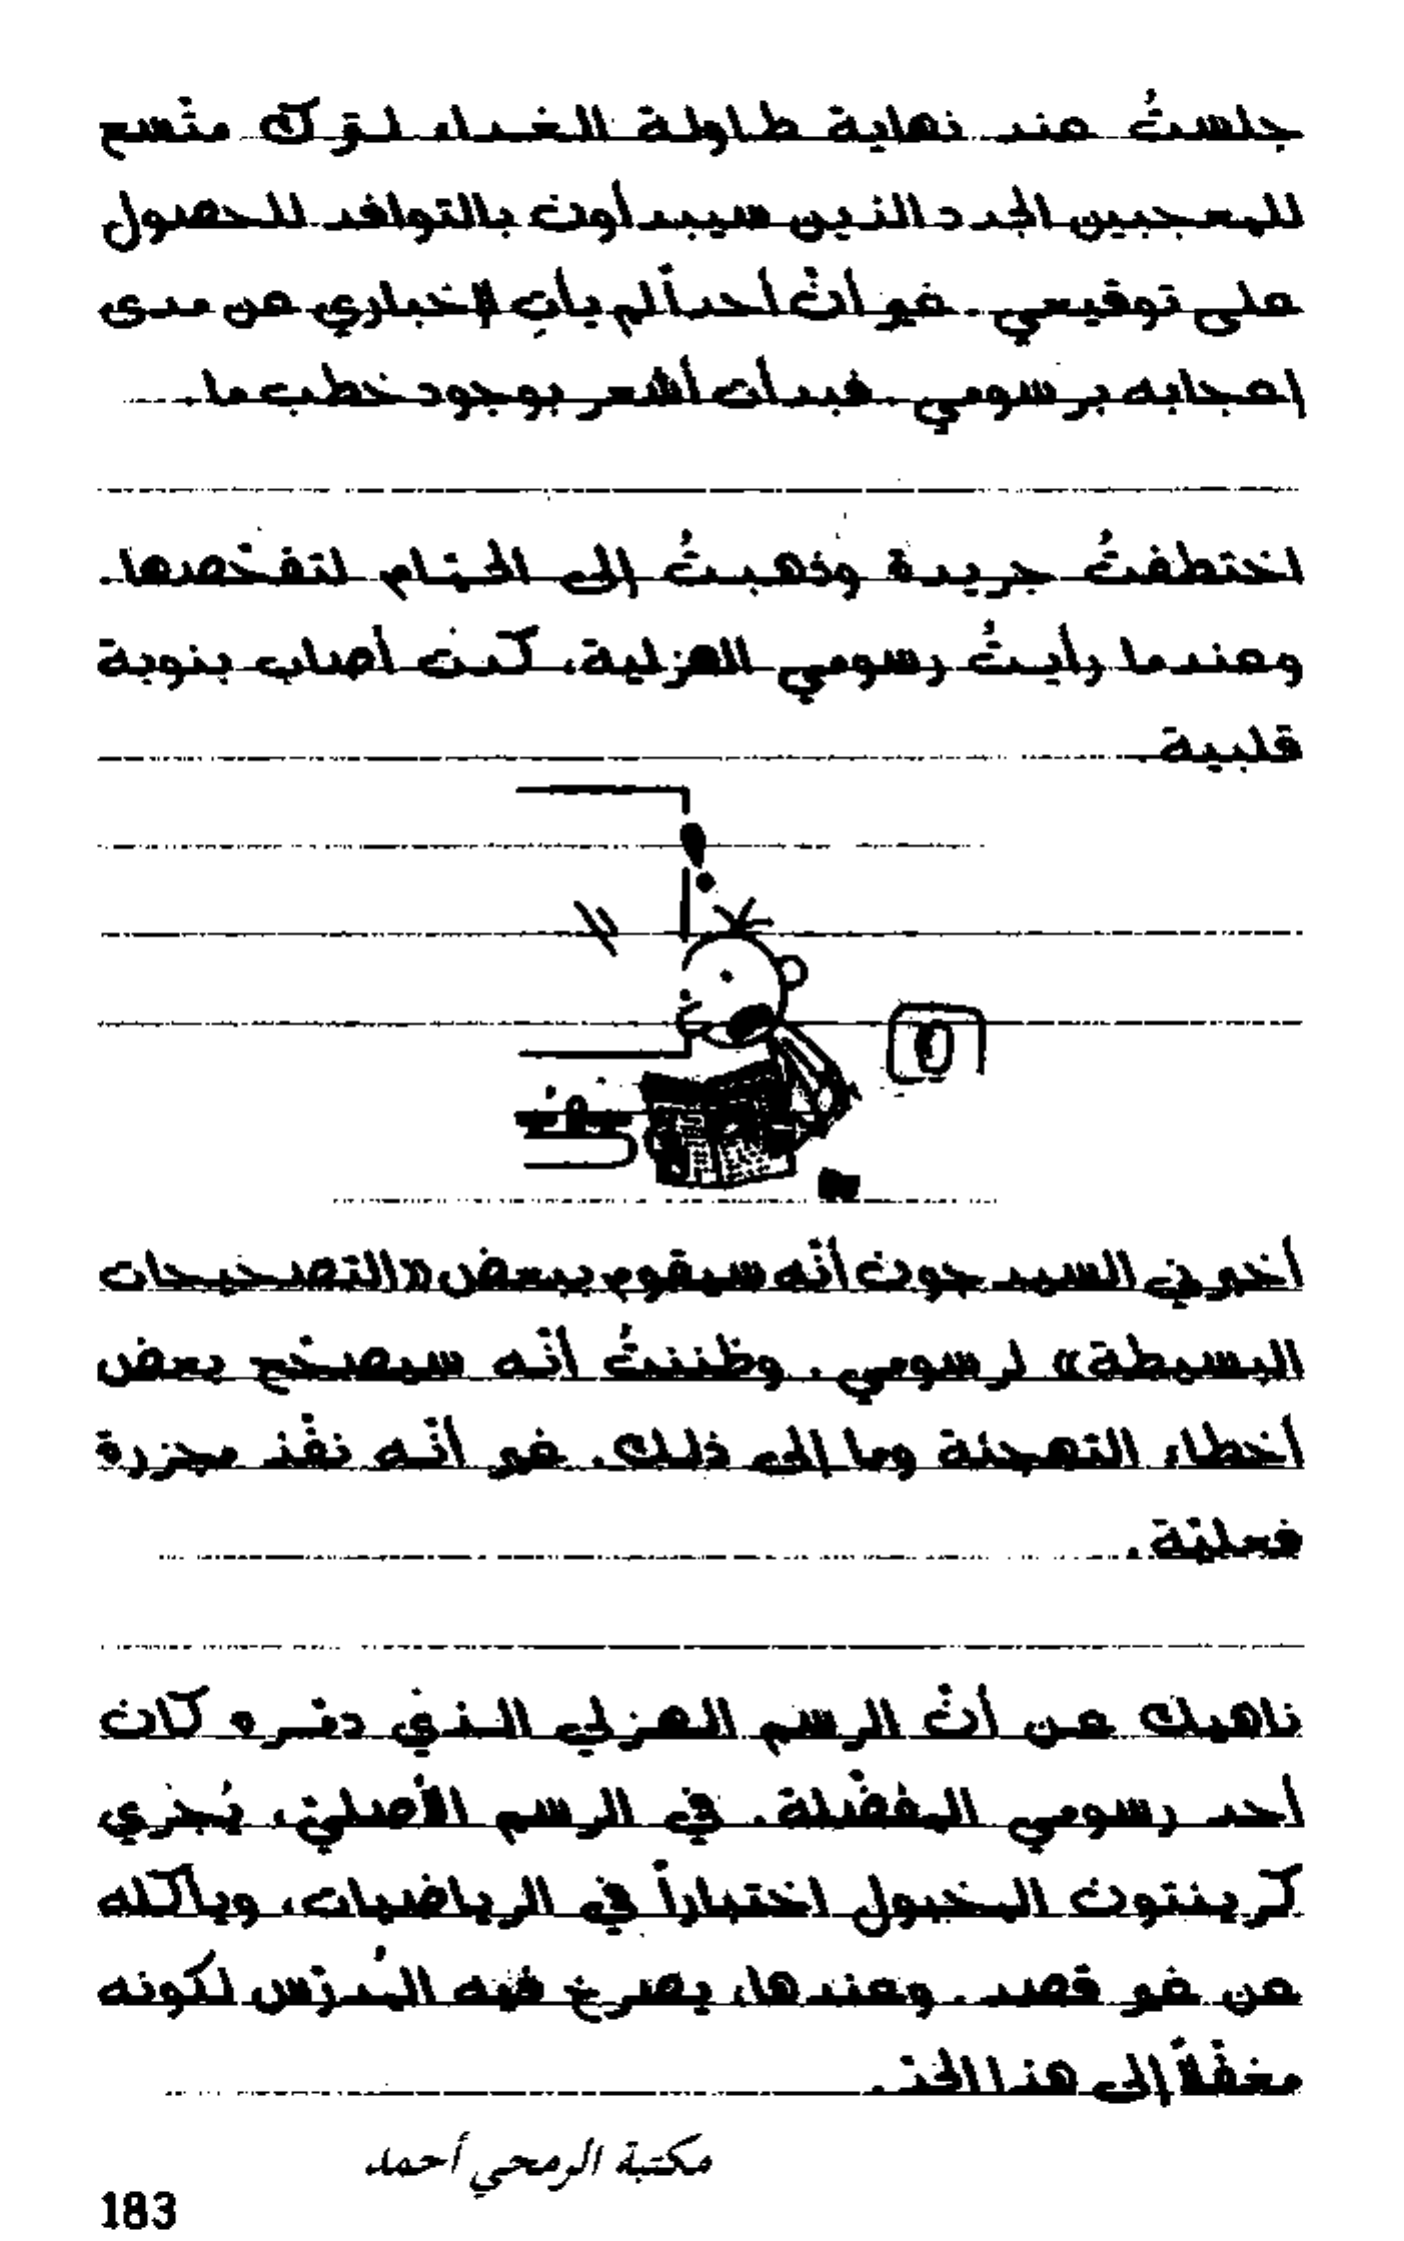 جلستُ عند نهاية طاولة الغداء لترك متّسع
للمعجبين الجدد الذين سيبدأون بالتوافد للحصول
على توقيعي. غير أنّ أحداً لم يأتِ لإخباري عن مدى
إعجابه برسومي. فبدأت أشعر بوجود خطب ما.
اختطفتُ جريدة وذهبتُ إلى الحمّام لتفحّصها.
وعندما رأيتُ رسومي الهزلية، كدت أصاب بنوبة
قلبية.
أخبرني السيد جون أنّه سيقوم ببعض «التصحيحات
البسيطة» لرسومي. وظننتُ أنّه سيصحّح بعض
أخطاء التهجئة وما إلى ذلك. غير أنّه نفّذ مجزرة
فعليّة.
ناهيك عن أنّ الرسم الهزلي الذي دمّره كان
أحد رسومي المفضّلة. في الرسم الأصليّ، يُجري
كرينتون المخبول اختباراً في الرياضيات، ويأكله
عن غير قصد. وعندها، يصرخ فيه المُدرّس لكونه
مغفّلاً إلى هذا الحدّ.
مكتبة الرمحي أحمد
183